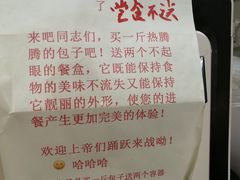 了
来吧同志们，买一斤热腾
腾的包子吧！送两个不起
眼的餐盒，它既能保持食
物的美味不流失又能保持
它靓丽的外形，使您的进
餐产生更加完美的体验！
欢迎上帝们踊跃来战呦！
😄哈哈哈
买一斤包子送两个容器